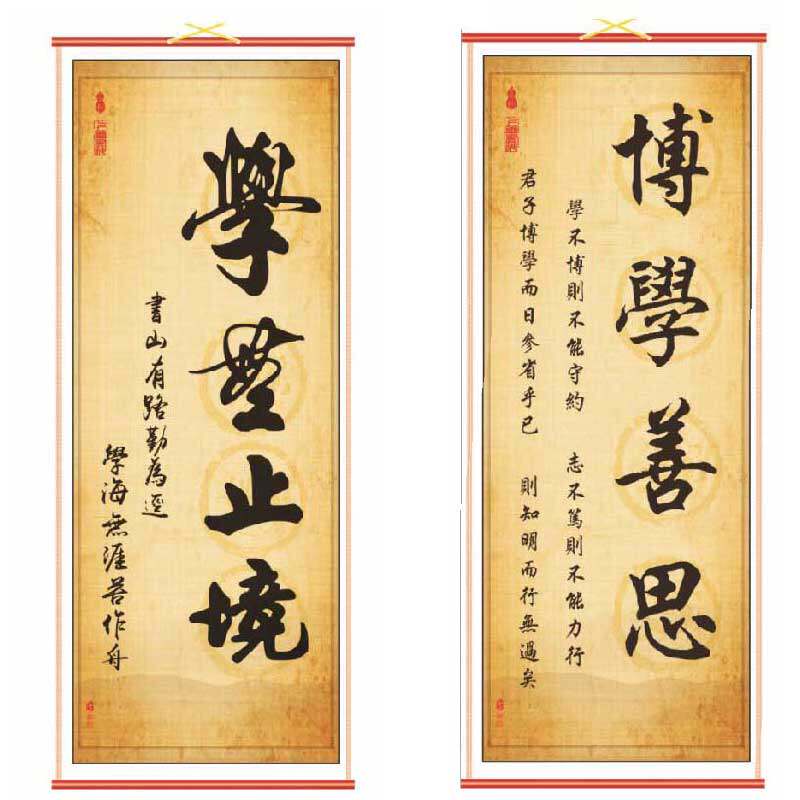 學無止境
書山有路勤為逕
學海無涯苦作舟
博學善思
學不博則不能守約 志不篤則不能力行
君子博學而日參省乎己 則知明而行無過矣